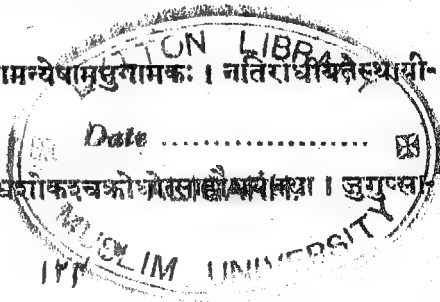 TON LIBRA
ामन्येषामसुगामकः । नतिराधीयतेस्थायी-
Date ....................
शोकश्चक्रोधोत्साहौभयंतथा । जुगुप्सा-
MUSLIM UNIVERSITY